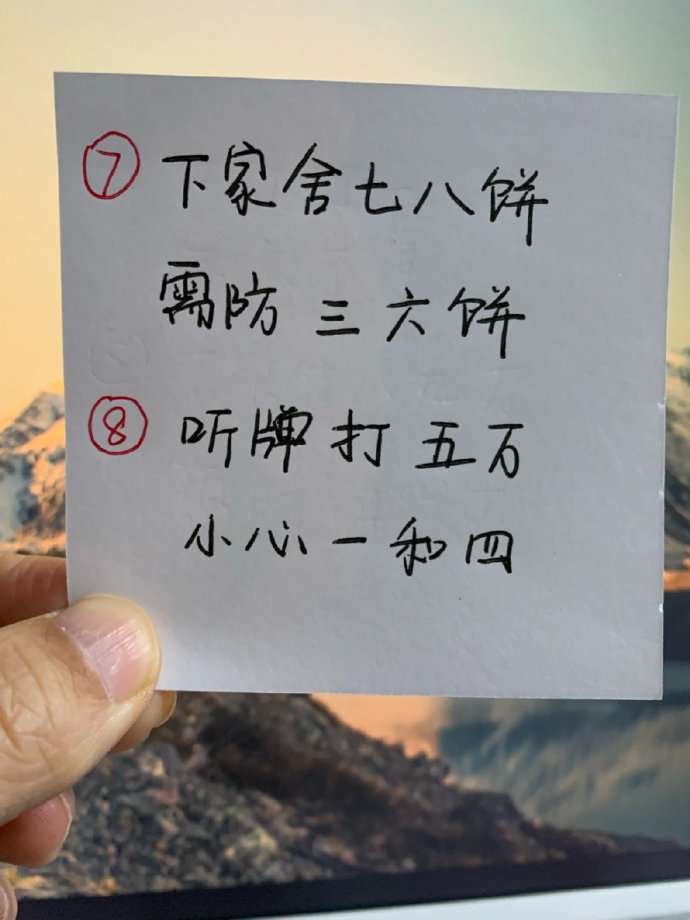 ⑦ 下家舍七八饼
需防三六饼
⑧ 听牌打五万
小心一和四